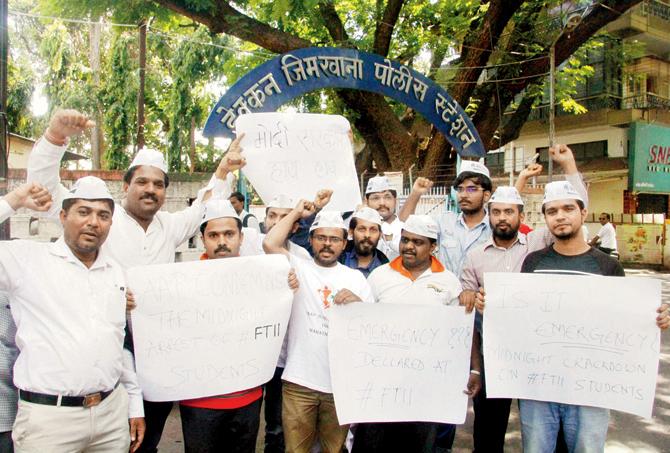 डेक्कन जिमखाना पोलीस स्टेशन
मोदी सरकार
हाय हाय
SNE
AAP CONDEMNS
THE MIDNIGHT
ARREST OF #FTII
STUDENTS
EMERGENCY ???
DECLARED AT
#FTII
IS IT
EMERGENCY?
MIDNIGHT CRACKDOWN
ON #FTII STUDENTS